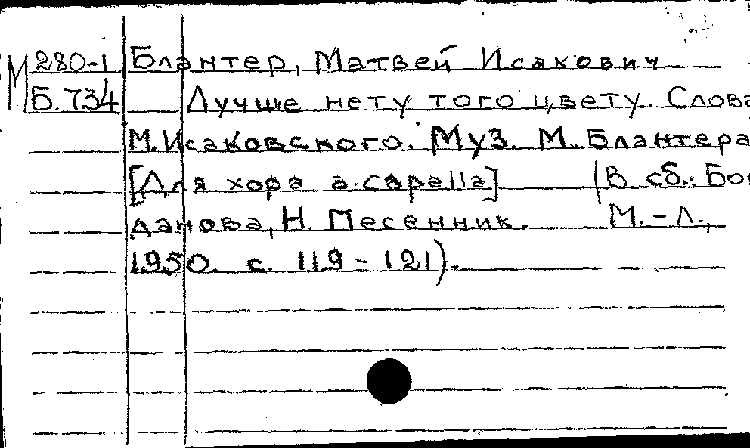 М 280-1 Блантер, Матвей Исакович
Б.734 Лучше нету того цвету. Слова
М.Исаковского. Муз. М. Блантера
[Для хора a capella] (В сб.: Бог
данова, Н. Песенник. М.-Л.,
1950. с. 119-121).